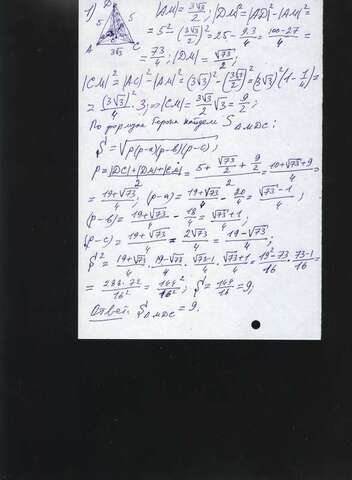 1) D |AM| = 3√3/2; |DM|² = |AD|² - |AM|² =
5 5 = 5² - (3√3/2)² = 25 - 9·3/4 = 100-27/4 =
A 3√3 C = 73/4; |DM| = √73/2;
|CM|² = |AC|² - |AM|² = (3√3)² - (3√3/2)² = (3√3)²(1 - 1/4) =
= (3√3)²/4 · 3; => |CM| = 3√3/2 √3 = 9/2;
По формуле Герона найдем S ΔMDC:
S = √p(p-a)(p-b)(p-c);
p = |DC|+|DM|+|CM|/2 = 5 + √73/2 + 9/2 / 2 = 10+√73+9/4 =
= 19+√73/4; (p-a) = 19+√73/4 - 20/4 = √73-1/4;
(p-b) = 19+√73/4 - 18/4 = √73+1/4;
(p-c) = 19+√73/4 - 2√73/4 = 19-√73/4;
S² = 19+√73/4 · 19-√73/4 · √73-1/4 · √73+1/4 = 19²-73/16 · 73-1/16 =
= 288·72/16² = 144²/16²; S = 144/16 = 9;
Ответ: S ΔMDC = 9.